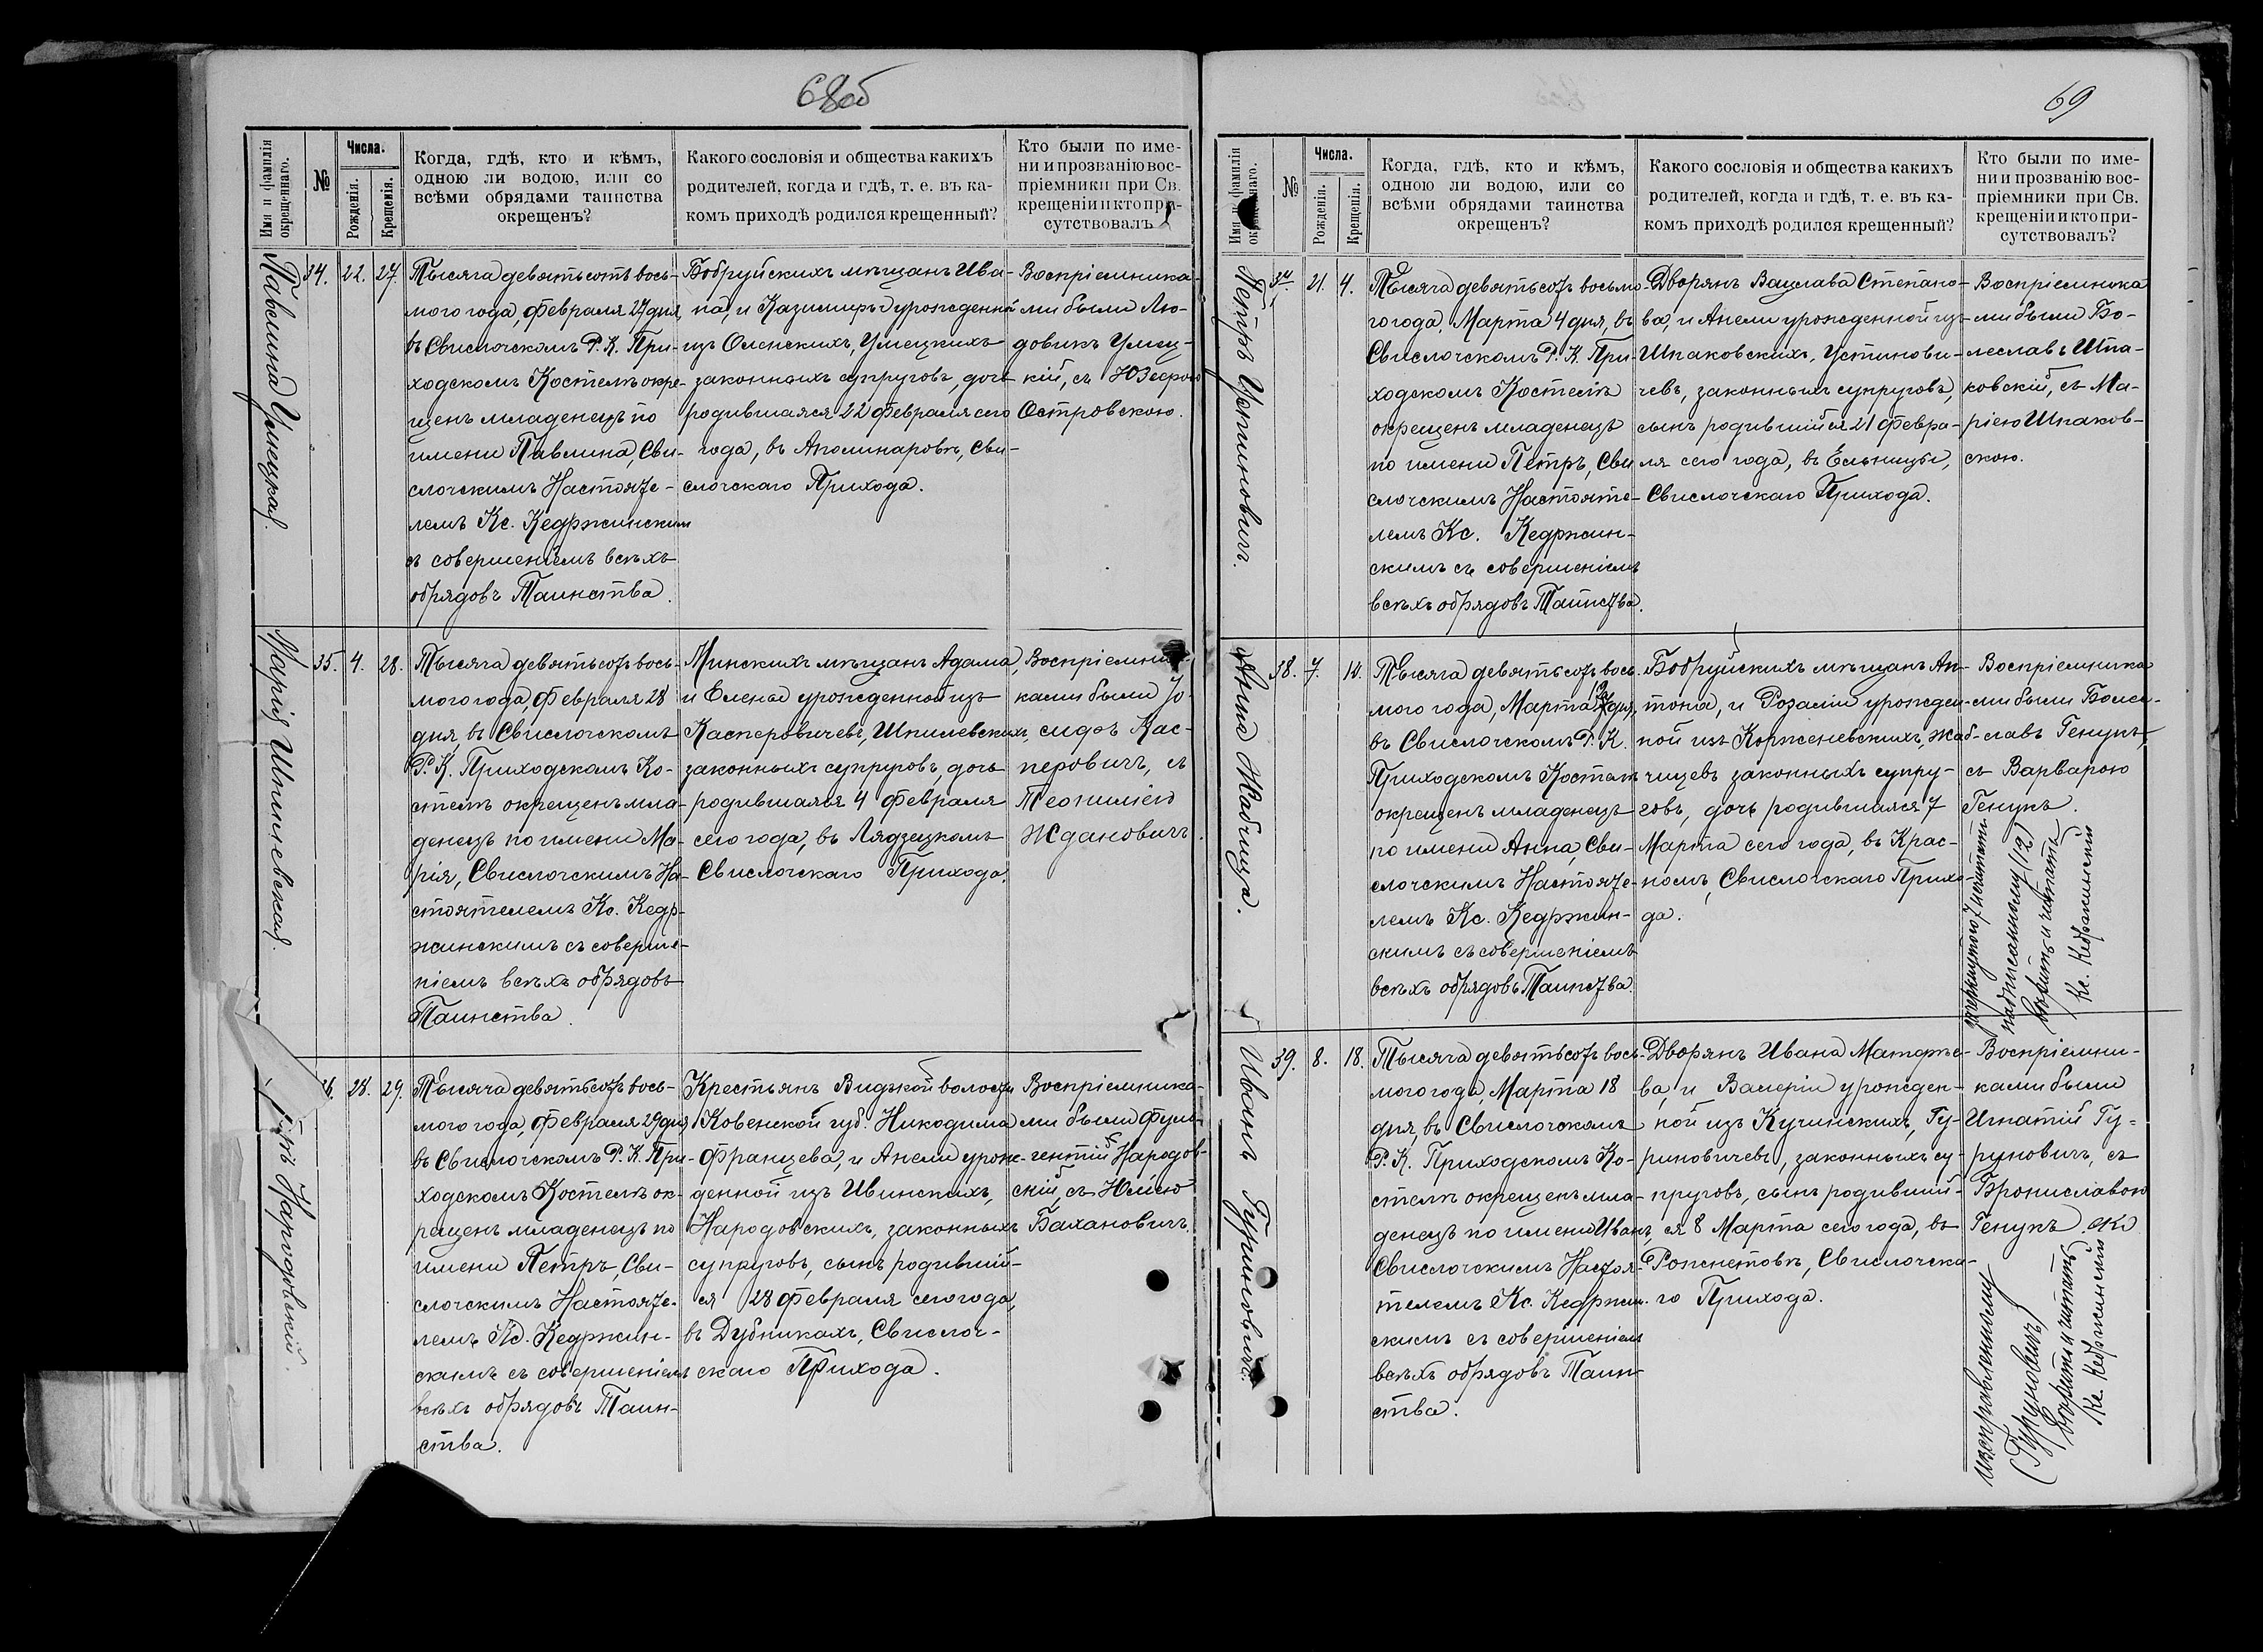 68об
Имя и фамилія окрещеннаго.
№
Числа.
Рожденія.
Крещенія.
Когда, гдѣ, кто и кѣмъ,
одною ли водою, или со
всѣми обрядами таинства
окрещенъ?
Какого сословія и общества какихъ
родителей, когда и гдѣ, т. е. въ ка-
комъ приходѣ родился крещенный?
Кто были по име-
ни и прозванію вос-
пріемники при Св.
крещеніи и кто при-
сутствовалъ
Павлина Умецкая.
34.
22.
27.
Тысяча девятьсотъ вось-
мого года, Февраля 27 дня,
въ Свислочскомъ Р. К. При-
ходскомъ Костелѣ окре-
щенъ младенецъ по
имени Павлина, Сви-
слочскимъ Настояте-
лемъ Кс. Кедржинским
съ совершеніемъ всѣхъ
обрядовъ Таинства.
Бобруйскихъ мѣщанъ Ива-
на, и Казимиры урожденной
изъ Оленскихъ, Умецкихъ
законныхъ супруговъ, дочь
родившаяся 22 Февраля сего
года, въ Аполинаровѣ, Сви-
слочскаго Прихода.
Воспріемника-
ми были Лю-
довикъ Умец-
кій, съ Юзефою
Островскою.
Марія Шпилевская.
35.
4.
28.
Тысяча девятьсотъ вось-
мого года, Февраля 28
дня, въ Свислочскомъ
Р. К. Приходскомъ Ко-
стелѣ окрещенъ мла-
денецъ по имени Ма-
рія, Свислочскимъ На-
стоятелемъ Кс. Кедр-
жинскимъ съ соверше-
ніемъ всѣхъ обрядовъ
Таинства.
Минскихъ мѣщанъ Адама,
и Елены урожденной изъ
Касперовичевъ, Шпилевскихъ,
законныхъ супруговъ, дочь
родившаяся 4 Февраля
сего года, въ Лядзецкомъ
Свислочскаго Прихода.
Воспріемни-
ками были Іо-
сифъ Кас-
перовичъ, съ
Теофиліею
Ждановичъ.
Петръ Народовскій.
36.
28.
29.
Тысяча девятьсотъ вось-
мого года, Февраля 29 дня
въ Свислочскомъ Р. К. При-
ходскомъ Костелѣ ок-
рещенъ младенецъ по
имени Петръ, Сви-
слочскимъ Настояте-
лемъ Кс. Кедржин-
скимъ съ совершеніемъ
всѣхъ обрядовъ Таин-
ства.
Крестьянъ Видзкой волости
Ковенской губ. Никодима
Францева, и Анели урож-
денной изъ Ивинскихъ,
Народовскихъ, законныхъ
супруговъ, сынъ родивший-
ся 28 Февраля сего года,
въ Дубникахъ, Свислоч-
скаго Прихода.
Воспріемника-
ми были Фуль-
гентій Народов-
скій, съ Юліею
Бахановичъ.
69
Имя и фамилія окрещеннаго.
№
Числа.
Рожденія.
Крещенія.
Когда, гдѣ, кто и кѣмъ,
одною ли водою, или со
всѣми обрядами таинства
окрещенъ?
Какого сословія и общества какихъ
родителей, когда и гдѣ, т. е. въ ка-
комъ приходѣ родился крещенный?
Кто были по име-
ни и прозванію вос-
пріемники при Св.
крещеніи и кто при-
сутствовалъ?
Петръ Устиновичъ.
37.
21.
4.
Тысяча девятьсотъ восьмо-
го года, Марта 4 дня, въ
Свислочскомъ Р. К. При-
ходскомъ Костелѣ
окрещенъ младенецъ
по имени Петръ, Сви-
слочскимъ Настояте-
лемъ Кс. Кедржин-
скимъ съ совершеніемъ
всѣхъ обрядовъ Таинства.
Дворянъ Вацлава Степано-
ва, и Анели урожденной изъ
Шпаковскихъ, Устинови-
чевъ, законныхъ супруговъ,
сынъ родившійся 21 Февра-
ля сего года, въ Ельницы,
Свислочскаго Прихода.
Воспріемника
ми были Бо-
леславъ Шпа-
ковскій, съ Ма-
ріею Шпаков-
скою.
Анна Жабчица.
38.
7.
10.
Тысяча девятьсотъ вось-
мого года, Марта 7 дня,
въ Свислочскомъ Р. К.
Приходскомъ Костелѣ
окрещенъ младенецъ
по имени Анна, Сви-
слочскимъ Настояте-
лемъ Кс. Кедржин-
скимъ съ совершеніемъ
всѣхъ обрядовъ Таинства.
Бобруйскихъ мѣщанъ Ан-
тона, и Розаліи урожден-
ной изъ Корженевскихъ, Жаб-
чицевъ законныхъ супру-
говъ, дочь родившаяся 7
Марта сего года, въ Крас-
номъ, Свислочскаго Прихо-
да.
Воспріемника
ми были Боле-
славъ Генукъ,
съ Варварою
Генукъ.
зачеркнутого 7 нечитать
надписанному (12)
вѣрить и читать
Кс. Кедржинскій
Иванъ Гуриновичъ.
39.
8.
18.
Тысяча девятьсотъ вось-
мого года, Марта 18
дня, въ Свислочскомъ
Р. К. Приходскомъ Ко-
стелѣ окрещенъ мла-
денецъ по имени Иванъ,
Свислочскимъ Настоя-
телемъ Кс. Кедржин-
скимъ съ совершеніемъ
всѣхъ обрядовъ Таин-
ства.
Дворянъ Ивана Матфѣе-
ва, и Валеріи урожден-
ной изъ Кучинскихъ, Гу-
риновичевъ, законныхъ су-
пруговъ, сынъ родивший-
ся 8 Марта сего года, въ
Рожнетовѣ, Свислочска-
го Прихода.
Воспріемни-
ками были
Игнатій Гу-
руновичъ, съ
Брониславою
Генукъ.
Исправленному
(Гуруновичъ)
вѣрить и читать
Кс. Кедржинскій